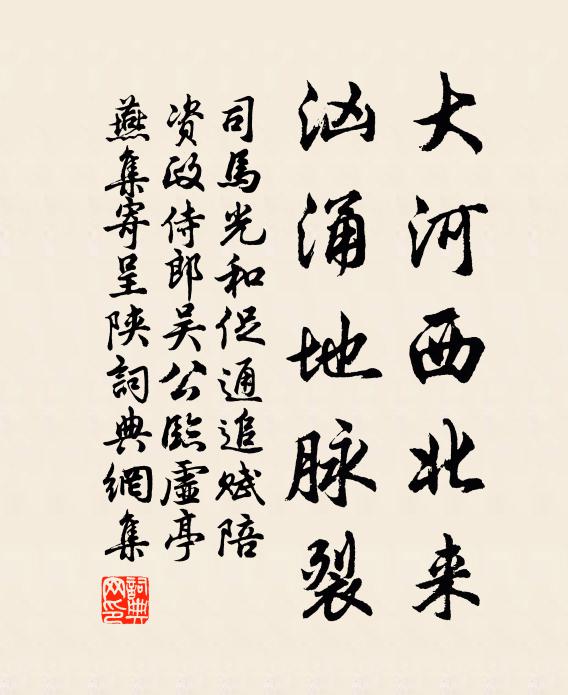 大河西北来
汹涌地脉裂
司馬光和促通追赋陪
资政侍郎吴公臨虚亭
燕集寄呈陕詞典網集
詞典网印